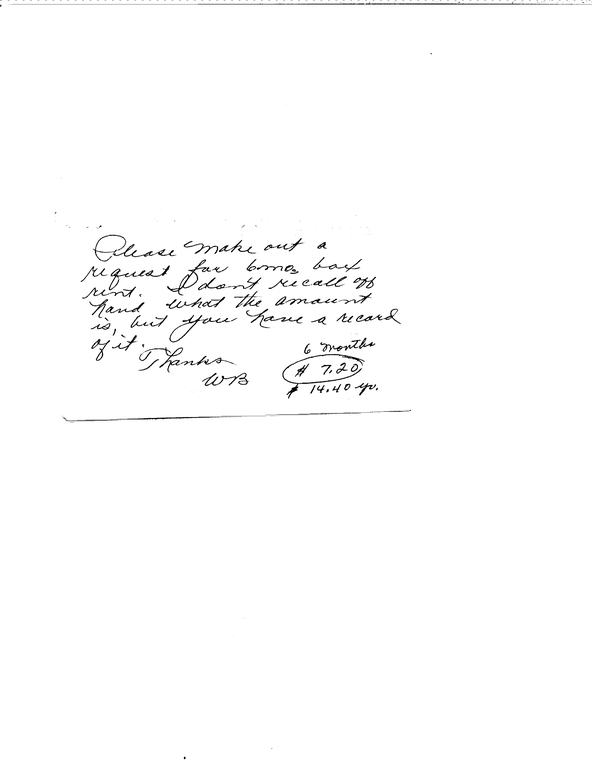 Please make out a
request for 6 mos box
rent. I don't recall off
hand what the amount
is, but you have a record
of it.
Thanks
WB
6 months
$ 7.20
$ 14.40 yr.